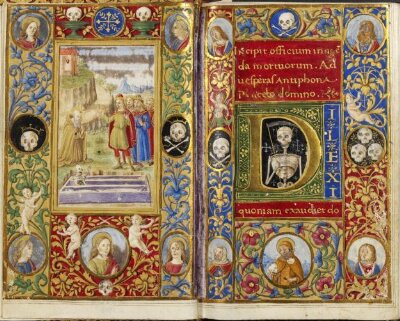 Incipit officium in age
da mortuorum. Ad
vesperas Antiphona
Placebo domino.
DILEXI
quoniam exaudiet do